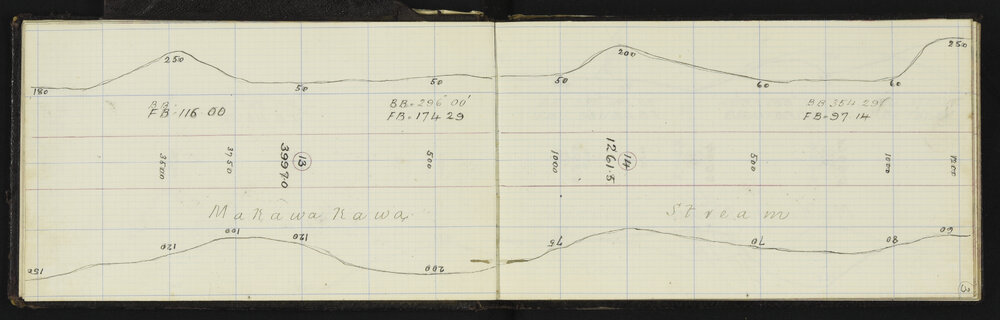 180
250
50
50
50
200
60
60
250
BB
FB=116 00
BB=296 00'
FB=174 29
BB 354 29'
FB=97 14
3500
3750
3997.0
13
500
1000
1261.5
14
500
1000
1200
Makawakawa
Stream
150
120
100
120
200
75
70
80
60